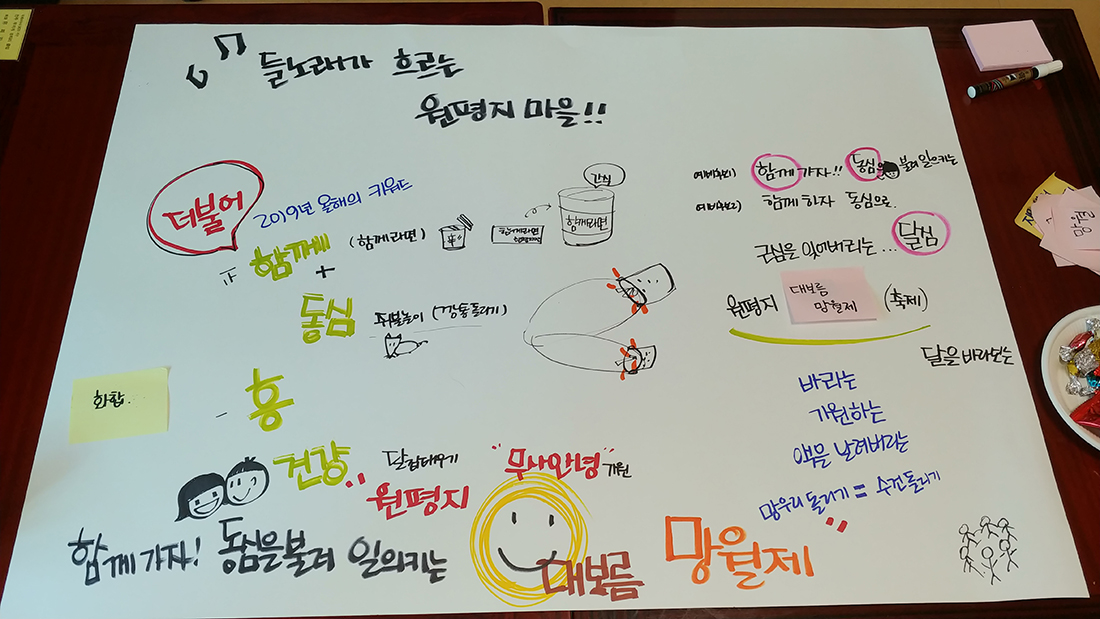 들노래가 흐르는
원평지 마을!!
더불어
2019년 올해의 키워드
함께 (함께라면)
+
동심 쥐불놀이 (깡통돌리기)
간식
함께라면
함께라면
화합.
- 흥
건강
달집태우기
원평지
"무사안녕" 기원
함께 가자! 동심을불러 일의키는
대보름 망월제
예비후보1) 함께 가자!! 동심을 불러 일으키는
예비후보2) 함께 하자 동심으로.
근심을 잊어버리는... 달심
원평지 대보름 망월제 (축제)
달을 바라보는
바라는
기원하는
액을 날려버리는
망우리 돌리기 = 수건돌리기
망월